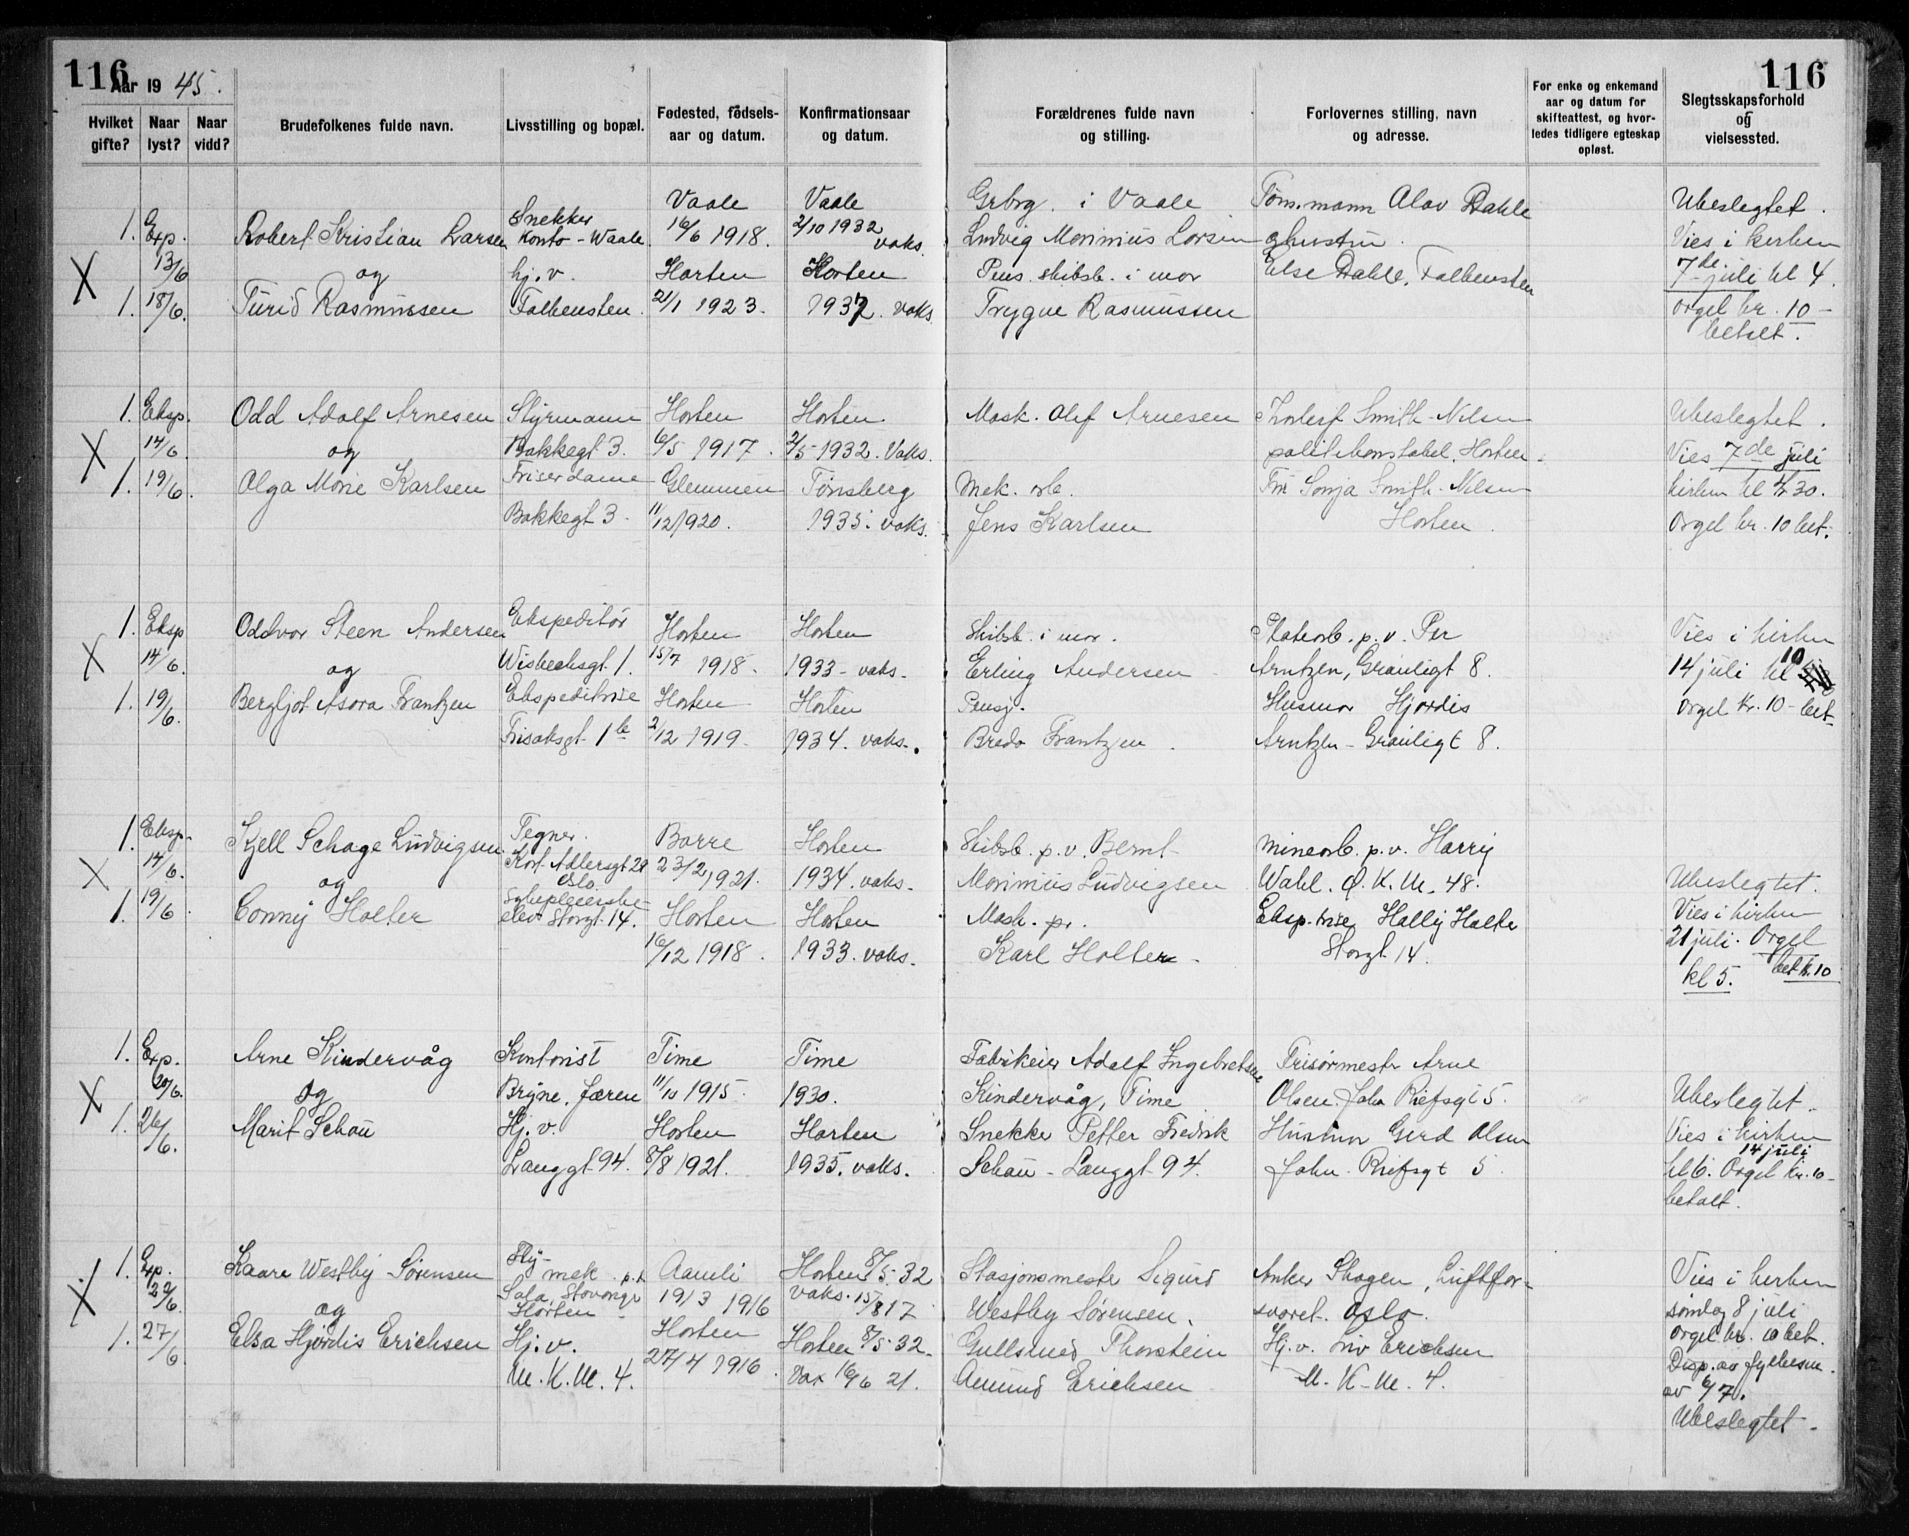 116 Aar 1945.
116
Hvilket gifte?
Naar lyst?
Naar vidd?
Brudefolkenes fulde navn.
Livsstilling og bopæl.
Fødested, fødsels-aar og datum.
Konfirmationsaar og datum.
Forældrenes fulde navn og stilling.
Forlovernes stilling, navn og adresse.
For enke og enkemand aar og datum for skifteattest, og hvor-ledes tidligere egteskap opløst.
Slegtsskapsforhold og vielsessted.
Vaale Vaale Grbrg. i Vaale Tømmann Olav Dahle Ubeslegtet.
1. Exp. Robert Kristian Larsen Snekker Konto - Waale. 16/6 1918. 2/10 1932 vaks. Ludvig Marinius Larsen Vies i kirken
X 13/6 og hj.v. Horten Horten Pens. skibsb. i mar Else Dahle, Falkensten 7de juli kl 4.
1. 18/6. Turid Rasmussen Falkensten. 21/1 1923. 1937. vaks. Trygve Rasmussen orgel kr. 10-
betalt.
1. Eksp. Odd Adolf Arnesen Styrmann Horten Horten Mask. Olef Arnesen Thorleif Smith-Nilsen Ubeslegtet.
X 14/6. og Bakkegt 3. 6/5 1917. 2/5-1932. Vaks. politikonstabel, Horten. Vies 7de juli
1. 19/6. Olga Marie Karlsen Friserdame Glemmen Tønsberg Mek. arb. Fru Sonja Smith-Nilsen kirken kl 4.30.
Bakkegt 3. 11/12 1920. 1935. vaks. Jens Karlsen Horten. Orgel kr. 10 bet.
1. Eksp Oddvar Steen Andersen Ekspeditør Horten Horten Skibsb. i mar. Platearb. p.v. Per Vies i kirken
X 14/6. og Wisbechsgt 1. 15/7 1918. 1933 - vaks. Erling Andersen Arntzen, Grønligt 8. 14 juli kl 10
1. 19/6. Bergljot Asora Frantzen Ekspeditrise Horten Horten Pensj. Husmor Hjørdis Orgel kr. 10 - bet.
Frisaksgt. 1b 2/12 1919. 1934. vaks. Bredo Frantzen. Arntzen - Grønligt 8.
1. Eksp. Kjell Schage Ludvigsen Tegner. Borre Horten Skibsb. p.v. Bernt minearb. p.v. Harry
X 14/6. og Kort Adlersgt 29 Oslo. 23/2 1921. 1934. vaks. Marinius Ludvigsen Wahl. Ø.K.M. 48. Ubeslegtet.
1. 19/6. Conny Holter Sykepleierske elev Storgt. 14. Horten Horten Mask. pr. Eksp.trise Hally Holte Vies i kirken
16/12 1918. 1933. vaks. Karl Holter. Storgt 14. 21 juli. Orgel
kl 5. bet k. 10
1. Exp. Arne Kindervåg Kontorist Time Time Fabrikeier Adolf Ingebretsen Frisørmester Arne
X 20/6. og Bryne, Jæren 11/10 1915. 1930. Kindervåg, Time Olsen. John Riefsgt 5. Ubeslegtet.
1. 26/6. Marit Schau Hj.v. Horten Horten Snekker Petter Fredrik Hustru Gerd Olsen Vies i kirken
Langgt 94. 8/8 1921. 1935. vaks. Schau - Langgt 94. John. Riefsgt 5. 14 juli
kl 6. Orgel kr. 10-
betalt.
1. Exp. Kaare Westby Sørensen Fly-mek p.t. Aamli Horten 8/5-32 Stasjonsmester Sigurd Anker Skogen, Luftfor- Vies i kirken
X 22/6. og Sola, Stavanger Horten 19/3 1916 vaks. 15/8 17 Westby Sørensen. svaret. Oslo. søndag 8 juli
1. 27/6 Elsa Hjørdis Erichsen Hj.v. Horten Horten 8/5-32. Gullsmed Thorstein Hj.v. Liv Erichsen Orgel kr. 10 bet.
M.K.M. 4. 27/4 1916. Vax 16/6 21. Amund Erichsen M.K-M. 4. Disp. av fylkesm.
av 6/7.
Ubeslegtet.